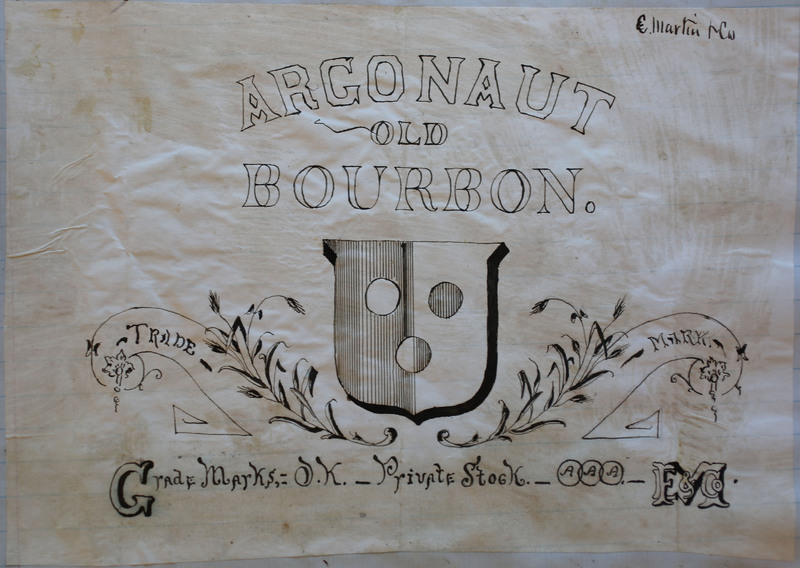 E. Martin & Co
ARGONAUT
OLD
BOURBON.
TRADE MARK.
Grade Marks,= O.K. – Private Stock. – AAA. – E&CoM.